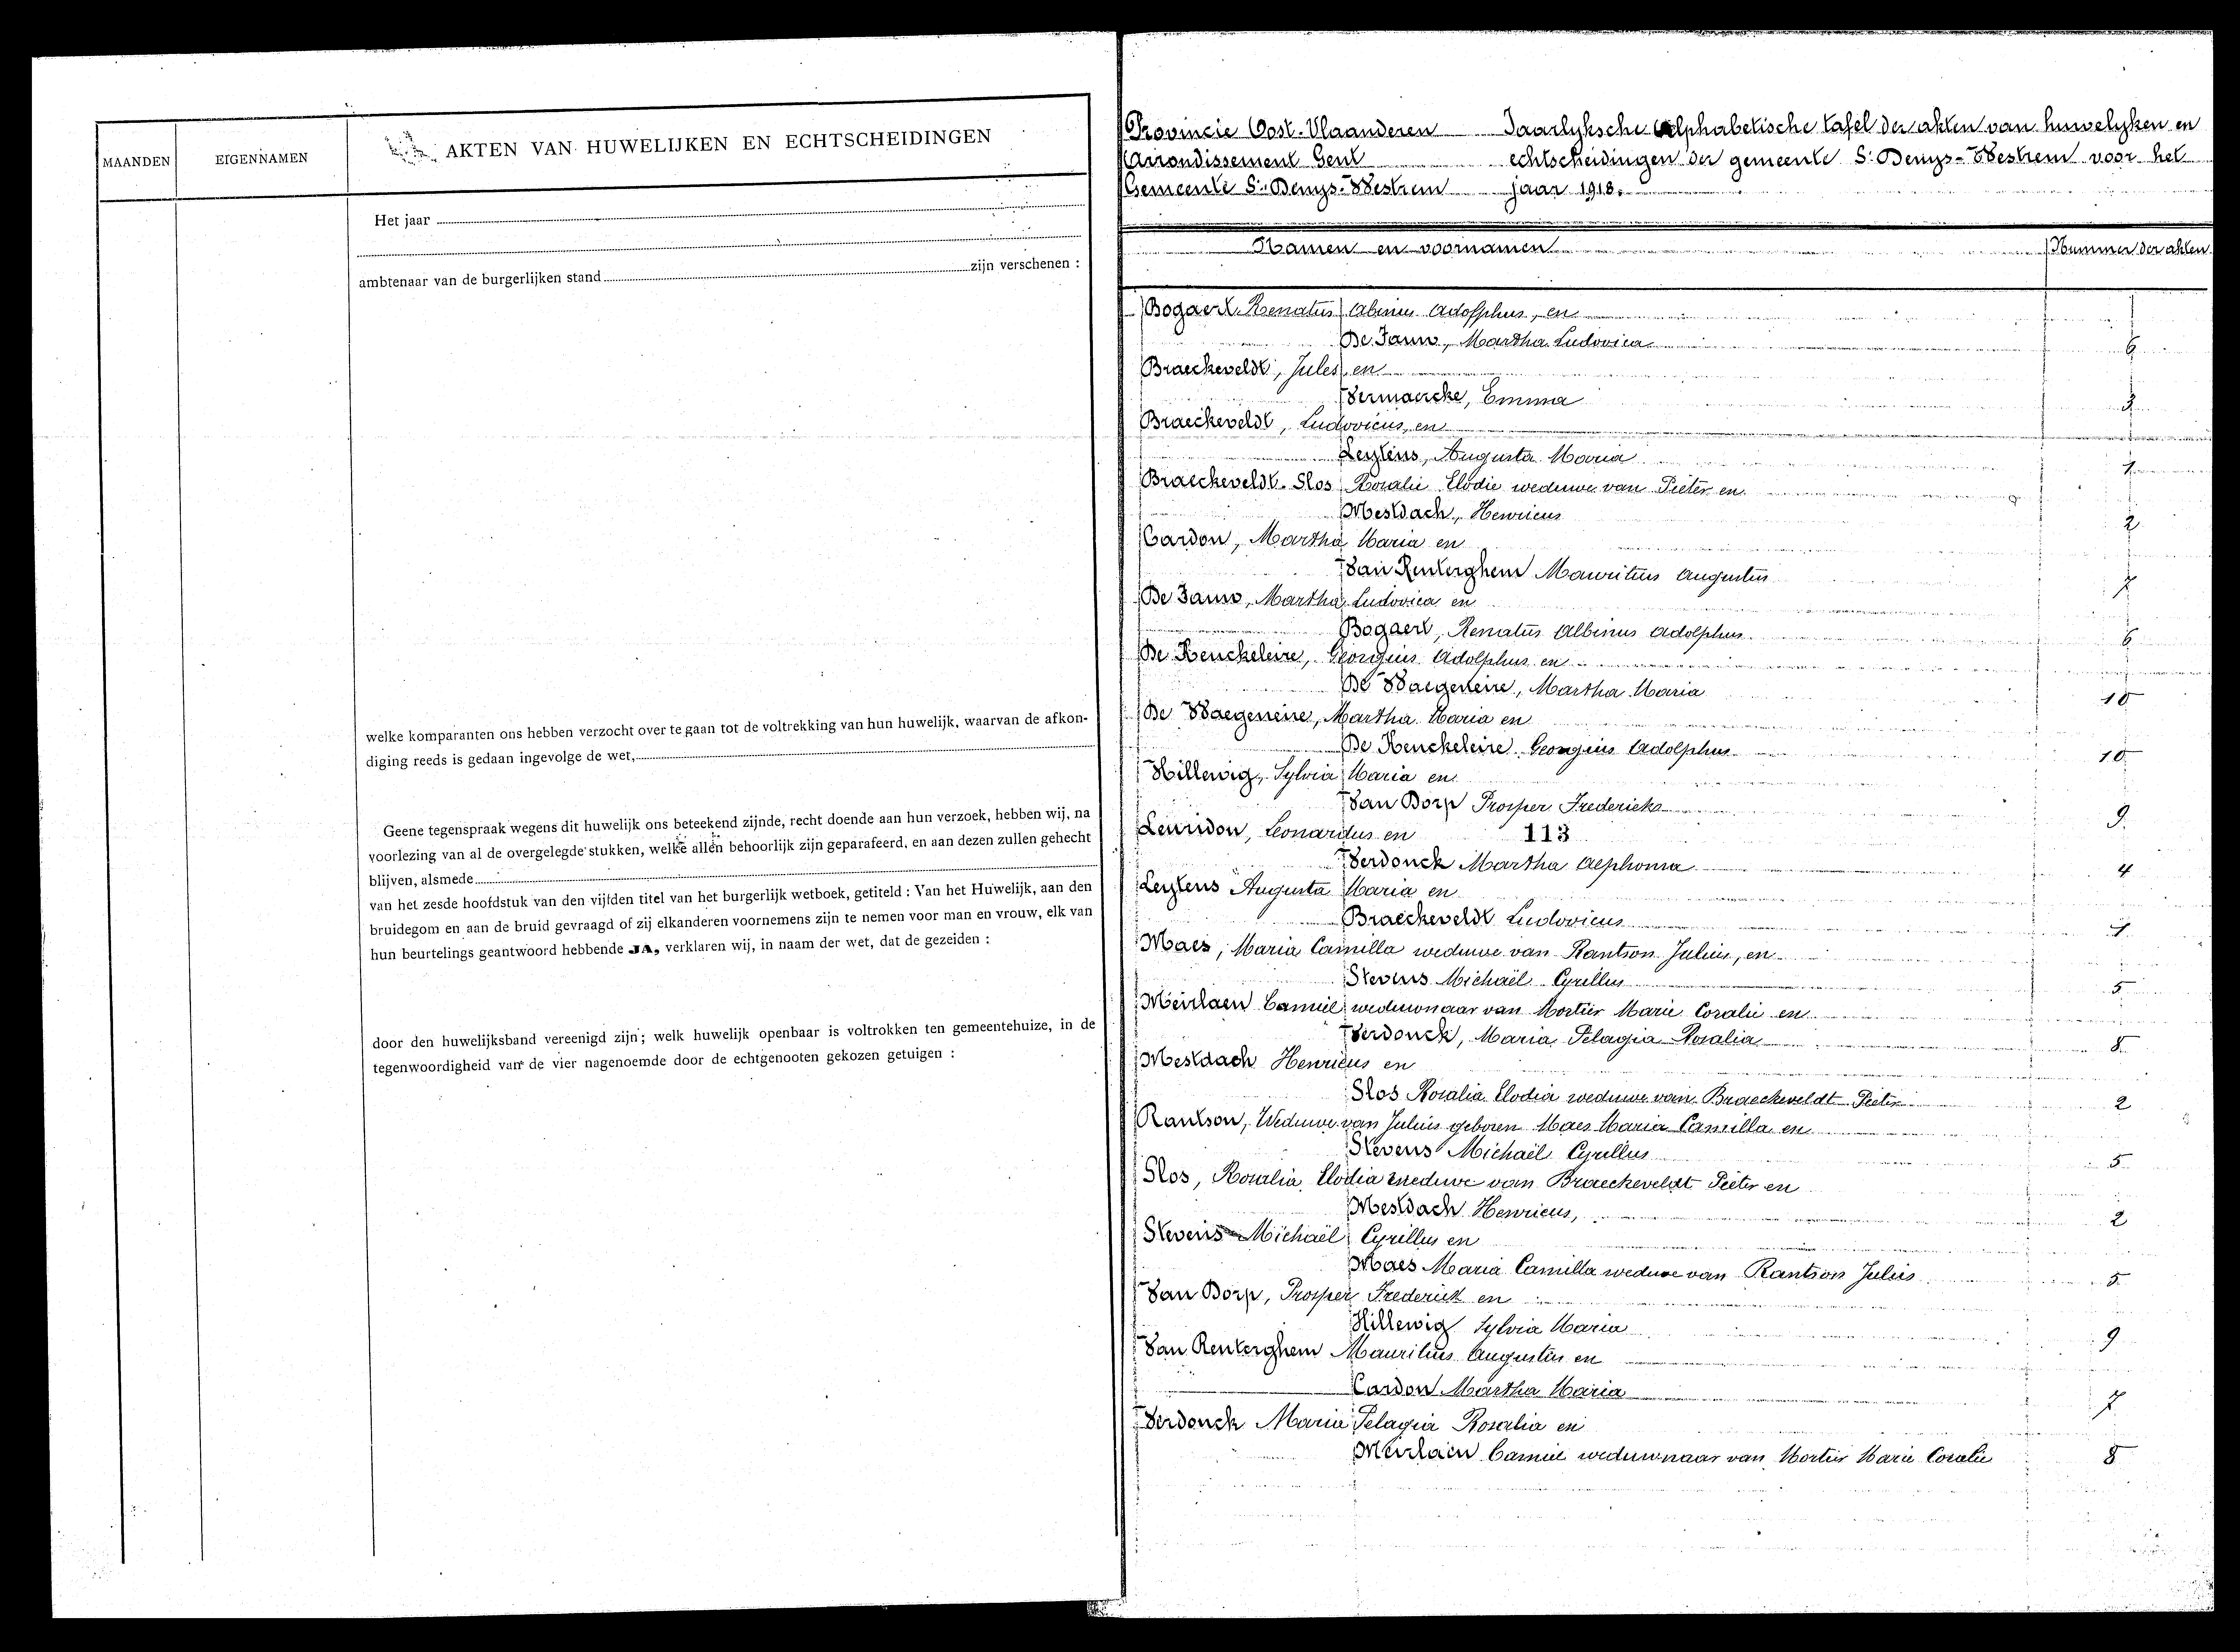 MAANDEN
EIGENNAMEN
AKTEN VAN HUWELIJKEN EN ECHTSCHEIDINGEN
Het jaar
ambtenaar van de burgerlijken stand zijn verschenen :
welke komparanten ons hebben verzocht over te gaan tot de voltrekking van hun huwelijk, waarvan de afkon-
diging reeds is gedaan ingevolge de wet,
Geene tegenspraak wegens dit huwelijk ons beteekend zijnde, recht doende aan hun verzoek, hebben wij, na
voorlezing van al de overgelegde stukken, welke allen behoorlijk zijn geparafeerd, en aan dezen zullen gehecht
blijven, alsmede
van het zesde hoofdstuk van den vijfden titel van het burgerlijk wetboek, getiteld : Van het Huwelijk, aan den
bruidegom en aan de bruid gevraagd of zij elkanderen voornemens zijn te nemen voor man en vrouw, elk van
hun beurtelings geantwoord hebbende JA, verklaren wij, in naam der wet, dat de gezeiden :
door den huwelijksband vereenigd zijn; welk huwelijk openbaar is voltrokken ten gemeentehuize, in de
tegenwoordigheid van de vier nagenoemde door de echtgenooten gekozen getuigen :
Provincie Oost-Vlaanderen Jaarlyksche alphabetische tafel der akten van huwelyken en
Arrondissement Gent echtscheidingen der gemeente St Denys-Westrem voor het
Gemeente St Denys-Westrem jaar 1918.
Namen en voornamen Nummer der akten
Bogaert Renatus Albinus Adolphus, en
De Jauw, Martha Ludovica 6
Braeckeveldt, Jules en
Vermaercke, Emma 3
Braeckeveldt, Ludovicus, en
Leytens, Augusta Maria 1
Braeckeveldt. Slos Rosalie Elodie weduwe van Pieter en
Mestdach, Henricus 2
Cardon, Martha Maria en
Van Renterghem Mauritius Augustus 7
De Jauw, Martha Ludovica en
Bogaert, Renatus Albinus Adolphus 6
De Keuckeleire, Georgius Adolphus en
De Waegeneire, Martha Maria 10
De Waegeneire, Martha Maria en
De Keuckeleire Georgius Adolphus 10
Hillewig, Sylvia Maria en
Van Dorp Prosper Frederick 9
Leuridon, Leonardus en 113
Verdonck Martha Alphonsa 4
Leytens Augusta Maria en
Braeckeveldt Ludovicus 1
Maes, Maria Camilla weduwe van Rantson Julius, en
Stevens Michaël Cyrillus 5
Meirlaen Camiel weduwnaar van Mortier Marie Coralie en
Verdonck, Maria Pelagia Rosalia 8
Mestdach Henricus en
Slos Rosalia Elodia weduwe van Braeckeveldt Pieter 2
Rantson, Weduwe van Julius geboren Maes Maria Camilla en
Stevens Michaël Cyrillus 5
Slos, Rosalia Elodia weduwe van Braeckeveldt Pieter en
Mestdach Henricus, 2
Stevens Michaël Cyrillus en
Maes Maria Camilla weduwe van Rantson Julius 5
Van Dorp, Prosper Frederick en
Hillewig Sylvia Maria 9
Van Renterghem Mauritius Augustus en
Cardon Martha Maria 7
Verdonck Maria Pelagia Rosalia en
Meirlaen Camiel weduwnaar van Mortier Marie Coralie 8